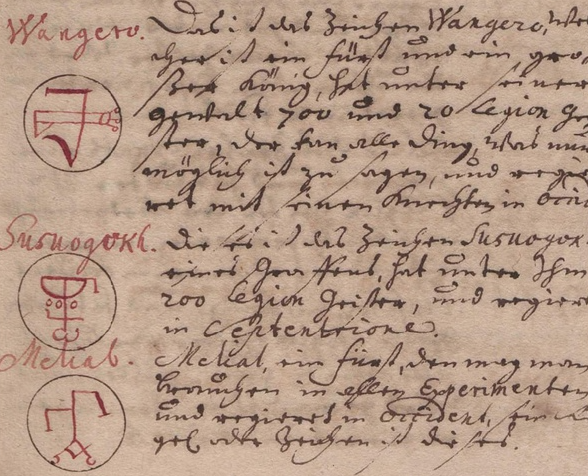 Wangero.
Das ist das Zeichen Wangero, wel
cher ist ein fürst und ein gro
ßer König, hat unter seiner
gewalt 700 und 20 Legion gei
ster, der kan alle ding, was nur
möglich ist zu sagen, und regie
ret mit seinen Knechten in occi
Susuogokh.
die ses ist das Zeichen Susuogok
eines Graffens, hat unter Ihm
200 Legion Geister, und regier
in Septentrione.
Melial.
Melial, ein fürst, den mag man
brauchen in allen Experimenten
und regieret in Occident, sein
gel oder Zeichen ist die ses.